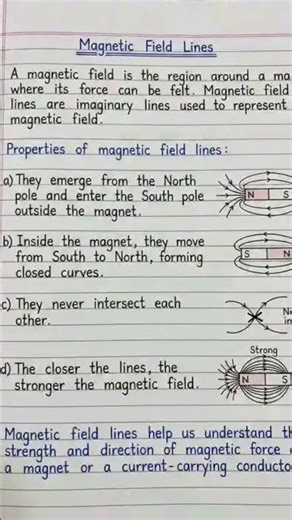 Magnetic Field Lines
A magnetic field is the region around a ma
where its force can be felt. Magnetic field
lines are imaginary lines used to represent
magnetic field.
Properties of magnetic field lines:
a) They emerge from the North
pole and enter the South pole
outside the magnet.
N S
b) Inside the magnet, they move
from South to North, forming
closed curves.
S N
c) They never intersect each
other.
Strong
d) The closer the lines, the
stronger the magnetic field.
N S
Magnetic field lines help us understand th
strength and direction of magnetic force
a magnet or a current-carrying conducto